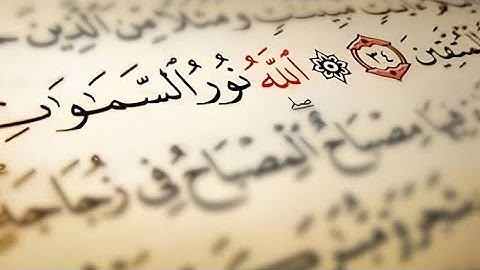 مُّبَيِّنَٰتٍ وَمَثَلًا مِّنَ ٱلَّذِينَ
لِّلْمُتَّقِينَ ٣٤ ۞ ٱللَّهُ نُورُ ٱلسَّمَٰوَٰتِ
فِيهَا مِصْبَاحٌۖ ٱلْمِصْبَاحُ فِى زُجَاجَةٍ
شَجَرَةٍ